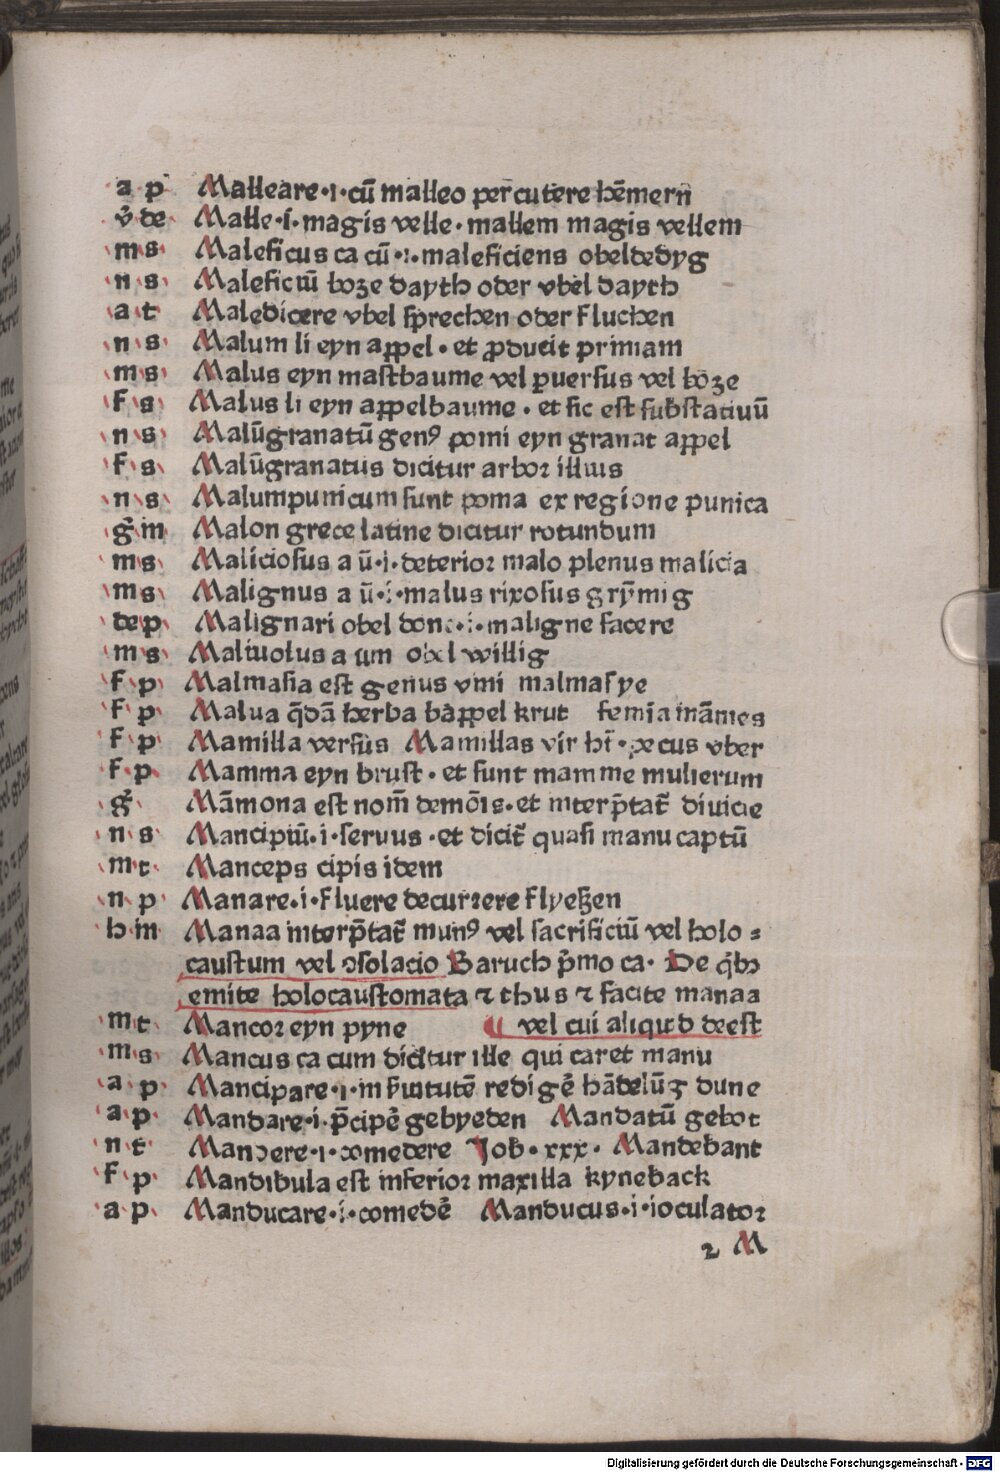 a p Malleare·i·cū malleo percutere hēmern
v̄ de Malle·i·magis velle·mallem magis vellem
m s Maleficus ca cū·i·maleficiens obeldedyg
n s Maleficiū boze dayth oder vbel dayth
a t Maledicere vbel sprechen oder fluchen
n s Malum li eyn appel·et ꝓducit primam
m s Malus eyn mastbaume vel ꝑuersus vel boze
f s Malus li eyn appelbaume·et sic est substātiuū
n s Malūgranatū genꝰ pomi eyn granat appel
f s Malūgranatus dicitur arbor illius
n s Malumpunicum sunt poma ex regione punica
ḡ in Malon grece latine dicitur rotundum
m s Maliciosus a ū·i·deterior malo plenus malicia
m s Malignus a ū·i·malus rixosus grȳmig
de p Malignari obel done·i·maligne facere
m s Maliuolus a um obel willig
f p Malmasia est genus vini malmasye
f p Malua q̄dā herba bappel krut
f p Mamilla versus Mamillas vir ht̄·pecus vber
f p Mamma eyn brust·et sunt mamme mulierum
ḡ Māmona est nom̄ demōis·et interp̄tat̄ diuicie
n s Mancipiū·i·seruus·et dicit̄ quasi manu captū
m t Manceps cipis idem
n p Manare·i·fluere decurrere flyeßen
h in Manaa interp̄tat̄ munꝰ vel sacrificiū vel holo⸗
caustum vel ↄsolacio Baruch p̄mo ca· De q̄bꝫ
emite holocaustomata ⁊ thus ⁊ facite manaa
m t Mancor eyn pyne ¶ vel cui aliquid deest
m s Mancus ca cum dicitur ille qui caret manu
a p Mancipare·i·in s̄uitutē redigē hādelūg dune
a p Mandare·i·p̄cipē gebyeden Mandatū gebot
n t Mandere·i·comedere Job·xxx·Mandebant
f p Mandibula est inferior maxilla kyneback
a p Manducare·i·comedē Manducus·i·ioculator
2 M
Digitalisierung gefördert durch die Deutsche Forschungsgemeinschaft - DFG